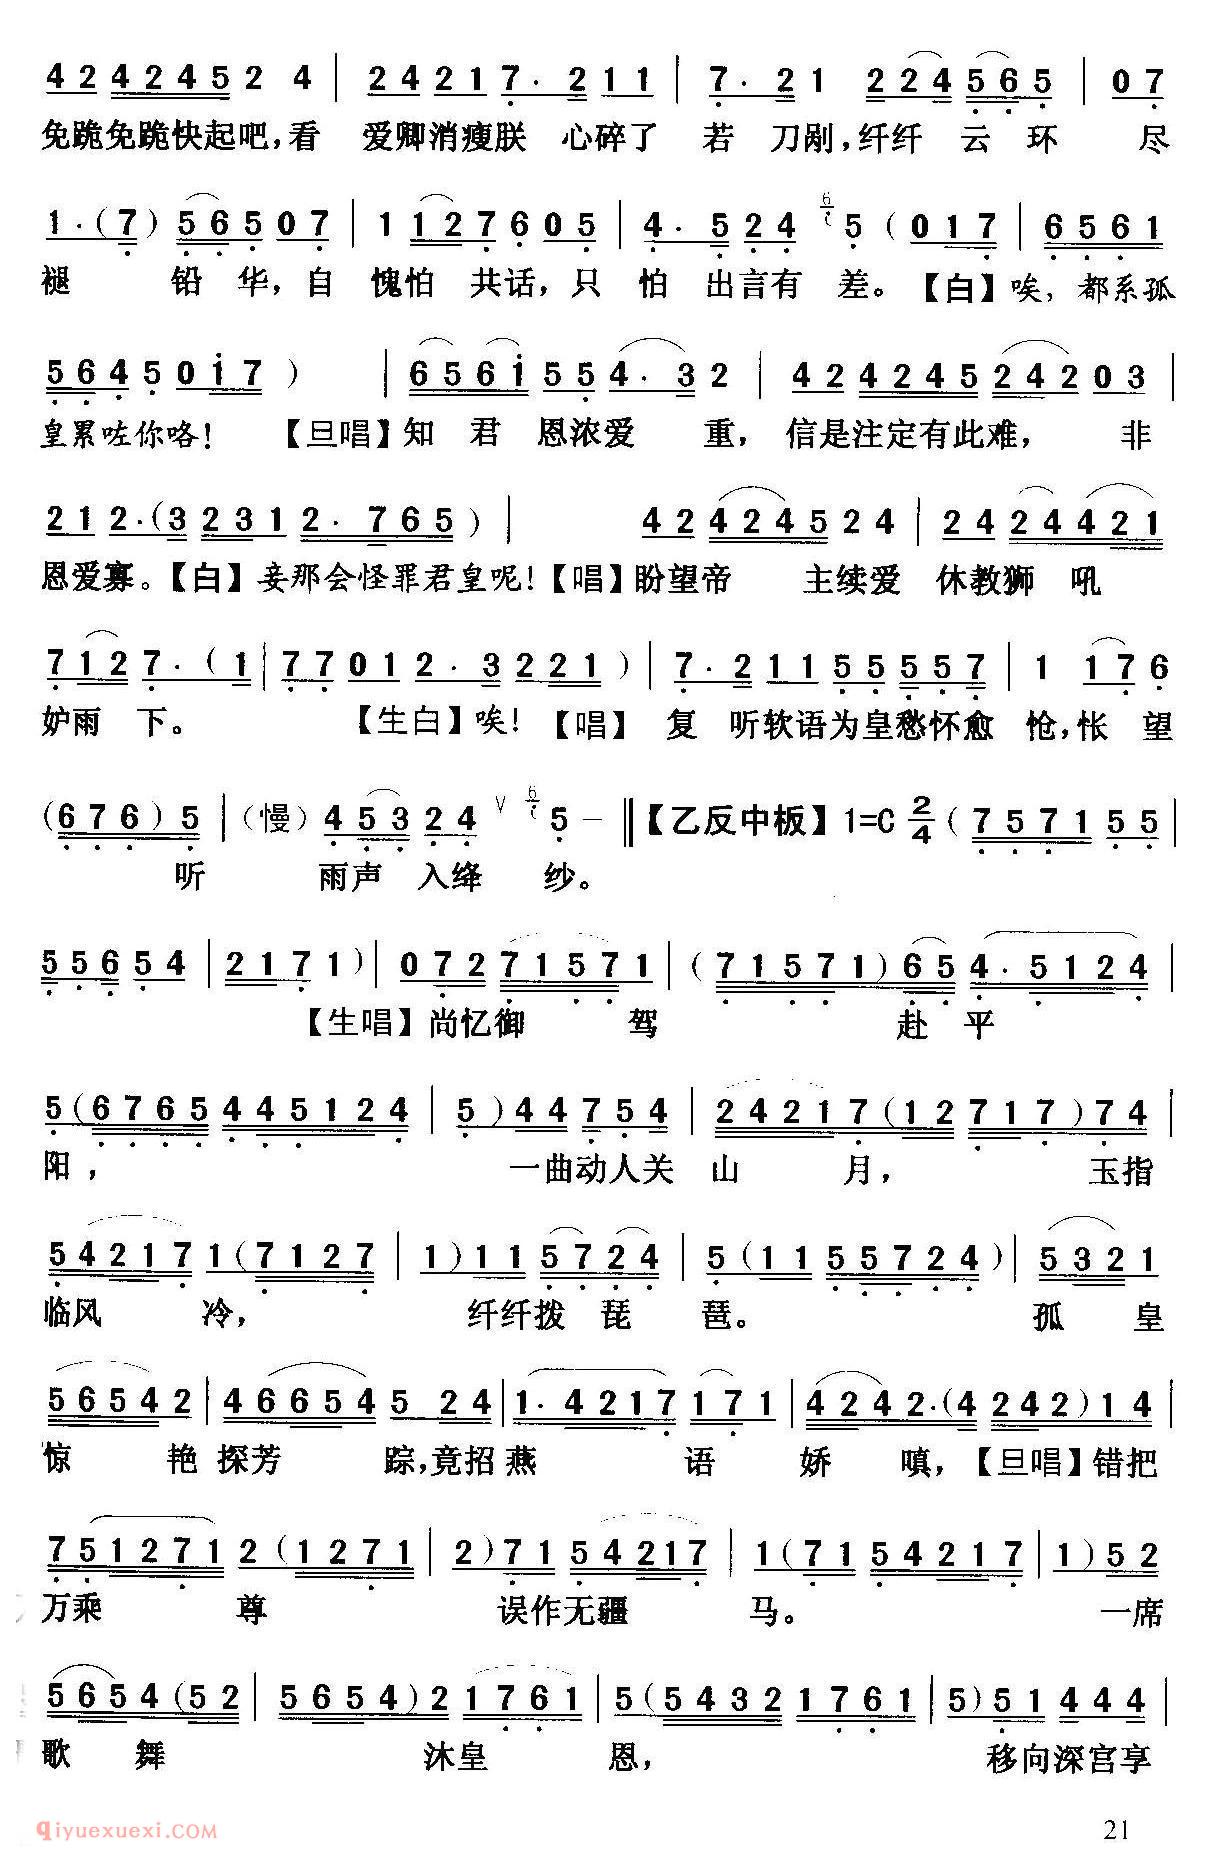 4 2 4 2 4 5 2 4 | 2 4 2 1 7 · 2 1 1 | 7 · 2 1 2 2 4 5 6 5 | 0 7
免跪免跪快起吧，看 爱卿消瘦朕 心碎了 若 刀剐，纤纤 云 环 尽
1 · ( 7 ) 5 6 5 0 7 | 1 1 2 7 6 0 5 | 4 · 5 2 4 6 5 ( 0 1 7 | 6 5 6 1
褪 铅 华，自 愧怕 共话，只 怕 出言有 差。【白】唉，都系孤
5 6 4 5 0 1 7 ) | 6 5 6 1 5 5 4 · 3 2 | 4 2 4 2 4 5 2 4 2 0 3 |
皇累咗你咯！ 【旦唱】知 君 恩浓爱 重，信是注定有此难， 非
2 1 2 · ( 3 2 3 1 2 · 7 6 5 ) | 4 2 4 2 4 5 2 4 | 2 4 2 4 4 2 1
恩爱寡。【白】妾那会怪罪君皇呢！【唱】盼望帝 主续爱 休教狮 吼
7 1 2 7 · ( 1 | 7 7 0 1 2 · 3 2 2 1 ) | 7 · 2 1 1 5 5 5 5 7 | 1 1 7 6
妒雨 下。 【生白】唉！【唱】 复 听软语为皇愁怀愈 怆，怅 望
( 6 7 6 ) 5 | （慢） 4 5 3 2 4 ∨ 6 5 - ‖【乙反中板】1=C 2/4 ( 7 5 7 1 5 5 |
听 雨声 入绛 纱。
5 5 6 5 4 | 2 1 7 1 ) | 0 7 2 7 1 5 7 1 | ( 7 1 5 7 1 ) 6 5 4 · 5 1 2 4 |
【生唱】尚忆御 驾 赴 平
5 ( 6 7 6 5 4 4 5 1 2 4 | 5 ) 4 4 7 5 4 | 2 4 2 1 7 ( 1 2 7 1 7 ) 7 4 |
阳， 一曲动人关 山 月， 玉指
5 4 2 1 7 1 ( 7 1 2 7 | 1 ) 1 1 5 7 2 4 | 5 ( 1 1 5 5 7 2 4 ) | 5 3 2 1
临风 冷， 纤纤拨 琵 琶。 孤 皇
5 6 5 4 2 | 4 6 6 5 4 5 2 4 | 1 · 4 2 1 7 1 7 1 | 4 2 4 2 · ( 4 2 4 2 ) 1 4 |
惊 艳 探芳 踪，竟招 燕 语 娇 嗔，【旦唱】错把
7 5 1 2 7 1 2 ( 1 2 7 1 | 2 ) 7 1 5 4 2 1 7 | 1 ( 7 1 5 4 2 1 7 | 1 ) 5 2
万乘 尊 误作无疆 马。 一席
5 6 5 4 ( 5 2 | 5 6 5 4 ) 2 1 7 6 1 | 5 ( 5 4 3 2 1 7 6 1 | 5 ) 5 1 4 4 4 |
歌 舞 沐皇 恩， 移向深宫享
qiyuexuexi.COM
21